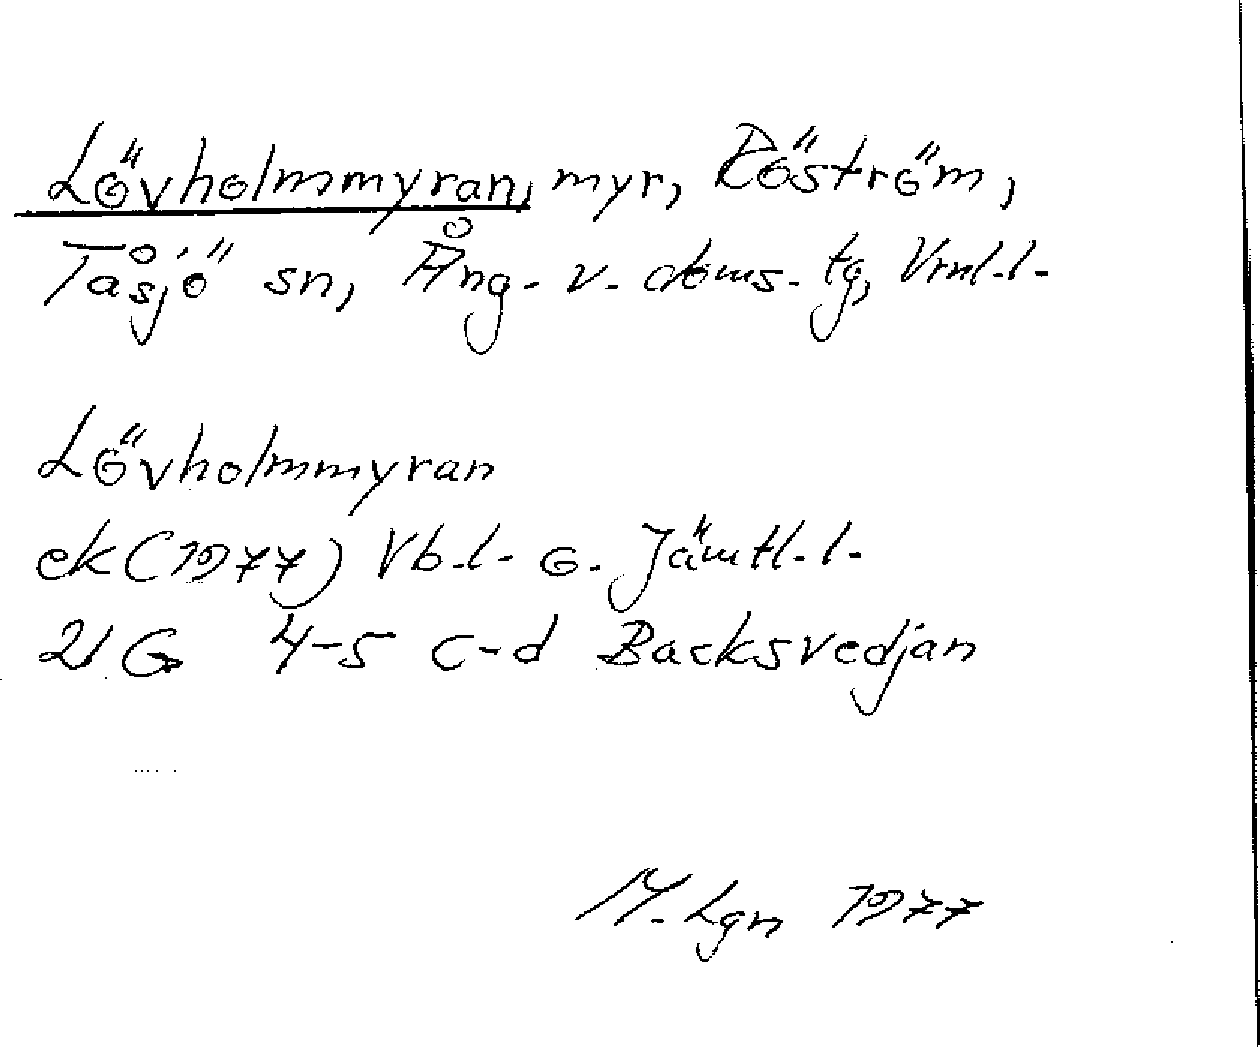 Lövholmmyran, myr, Röström,
Tåsjö sn, Ång. v. doms. tg, Vrnl. l.
Lövholmmyran
ek (1977) Vb. l. o. Jämtl. l.
21 G 4-5 c-d Backsvedjan
M. Lgn 1977